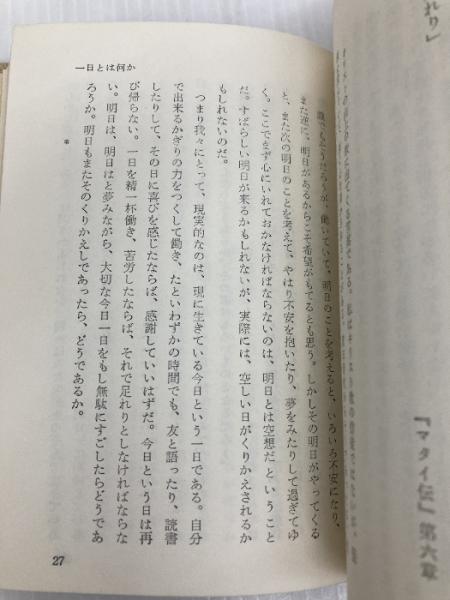 れり」
『マタイ伝』第六章
一日とは何か
誰でもそうだろうが、働いていて、明日のことを考えると、いろいろ不安になり、
また逆に、明日があるからこそ希望がもてるとも思う。しかしその明日がやってくる
と、また次の明日のことを考えて、やはり不安を抱いたり、夢をみたりして過ぎてゆ
く。ここでまず心にいれておかなければならないのは、明日とは空想だということ
だ。すばらしい明日が来るかもしれないが、実際には、空しい日がくりかえされるか
もしれないのだ。
つまり我々にとって、現実的なのは、現に生きている今日という一日である。自分
で出来るかぎりの力をつくして働き、たといわずかの時間でも、友と語ったり、読書
したりして、その日に喜びを感じたならば、感謝していいはずだ。今日という日は再
び帰らない。一日を精一杯働き、苦労したならば、それで足れりとしなければならな
い。明日は、明日はと夢みながら、大切な今日一日をもし無駄にすごしたらどうであ
ろうか。明日もまたそのくりかえしであったら、どうであるか。
27